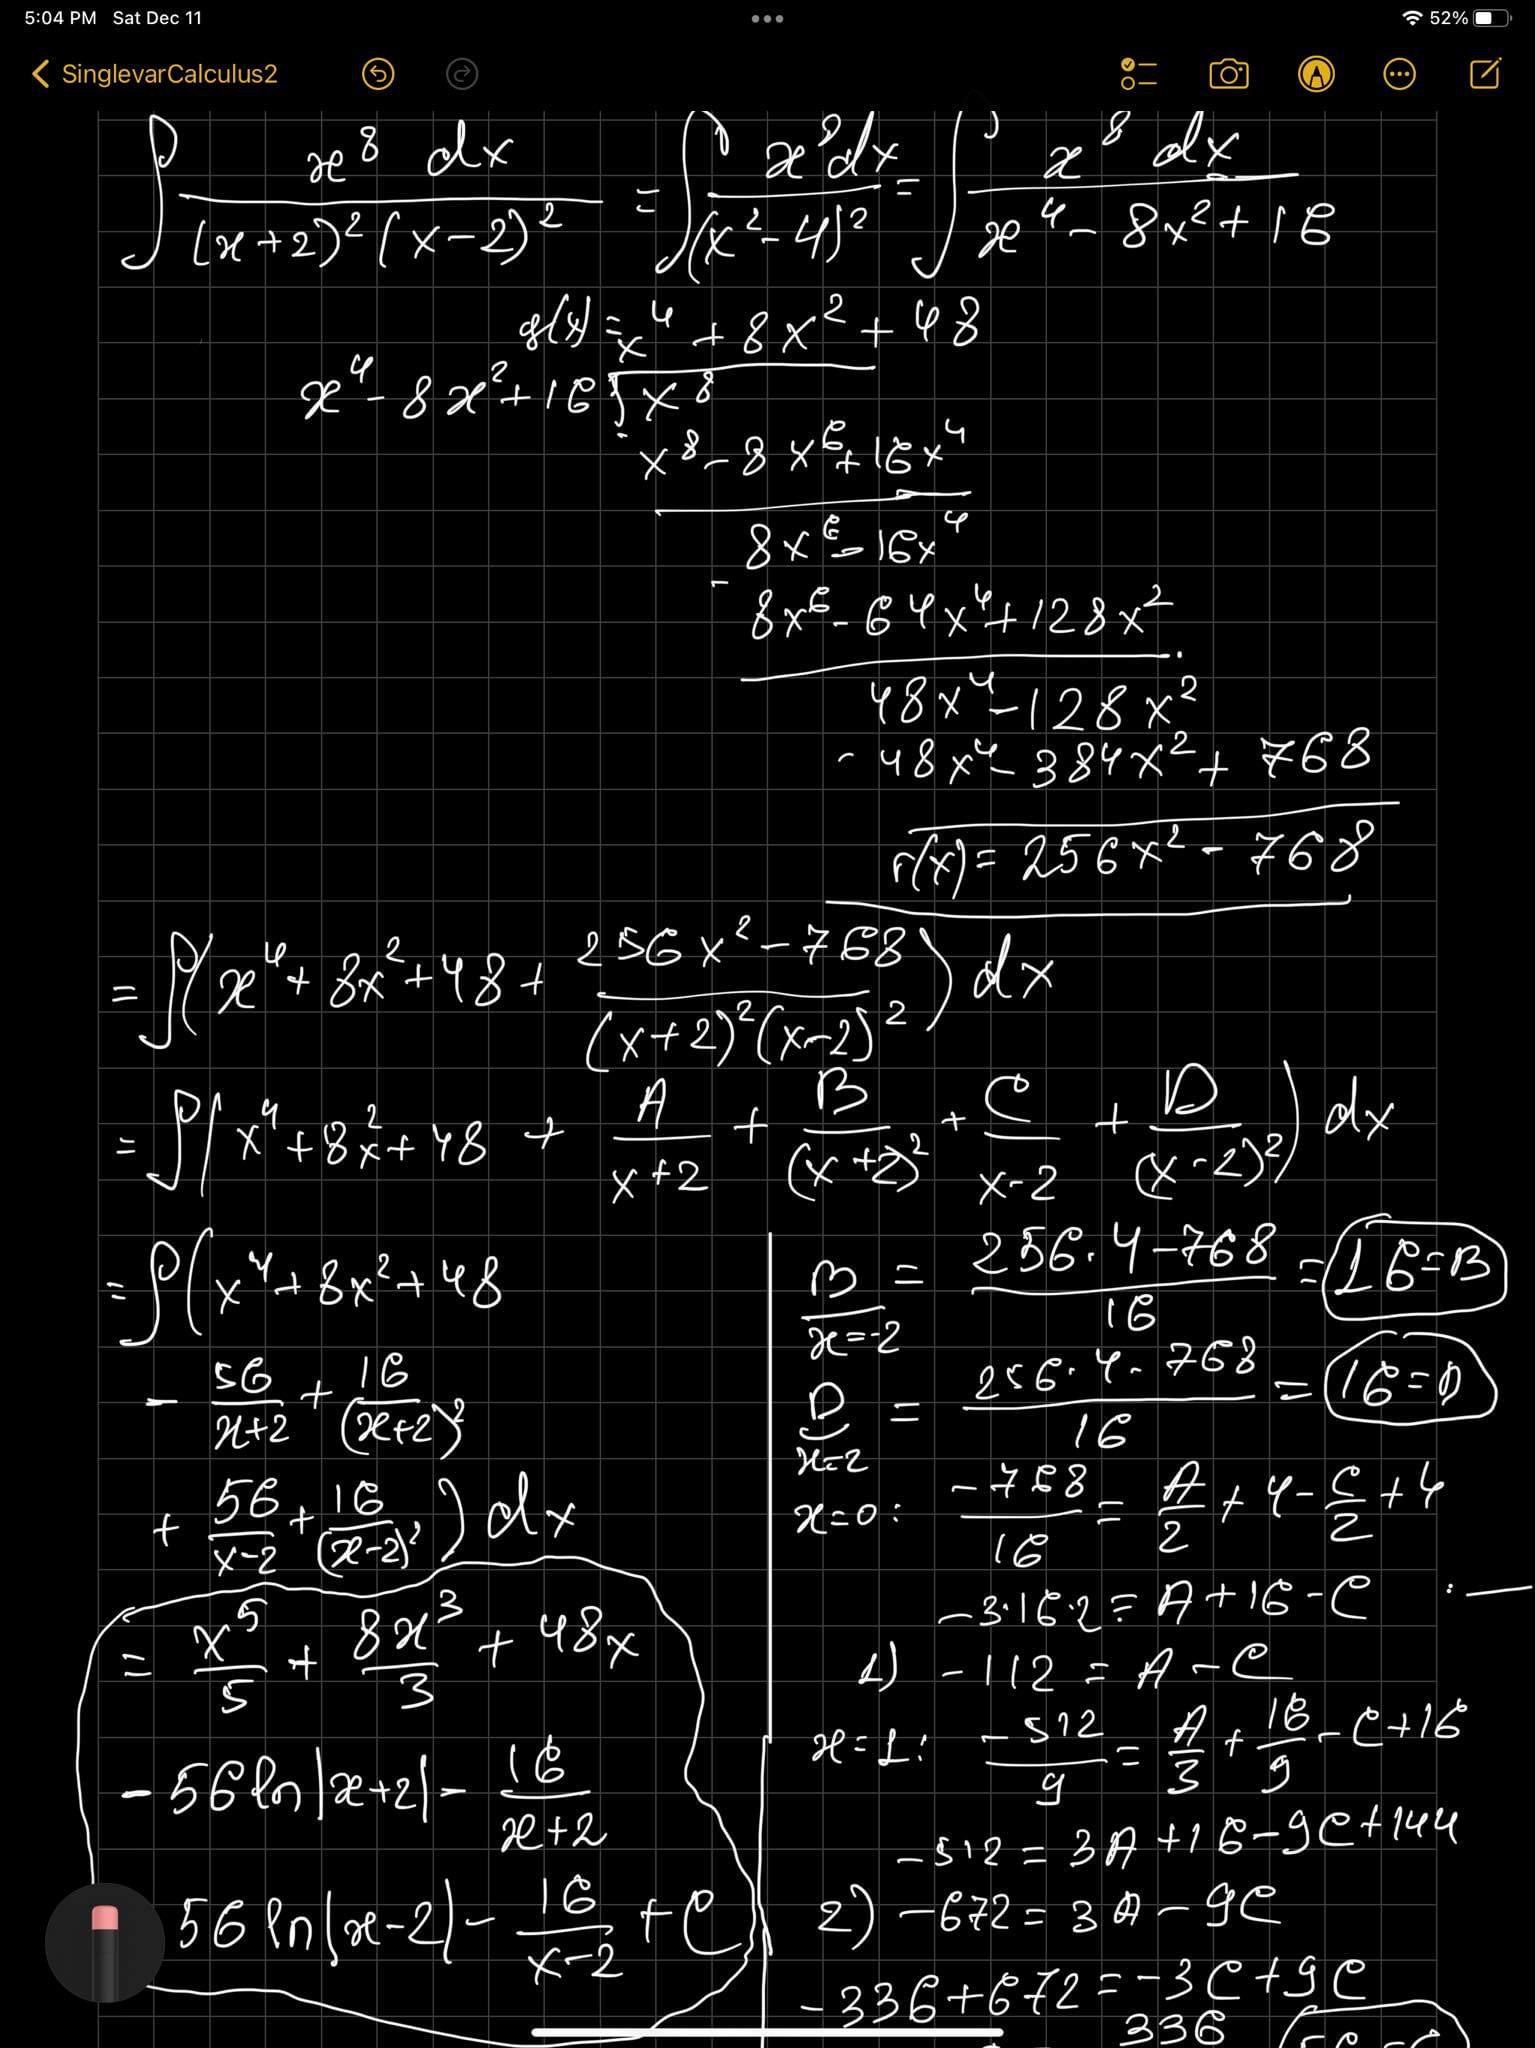 5:04 PM Sat Dec 11
52%
SinglevarCalculus2
∫ x⁸ dx / (x+2)² (x-2)² = ∫ x⁸ dx / (x²-4)² = ∫ x⁸ dx / x⁴ - 8x² + 16
g(x) = x⁴ + 8x² + 48
x⁴ - 8x² + 16 ) x⁸
- x⁸ - 8x⁶ + 16x⁴
8x⁶ - 16x⁴
- 8x⁶ - 64x⁴ + 128x²
48x⁴ - 128x²
- 48x⁴ - 384x² + 768
r(x) = 256x² - 768
= ∫ ( x⁴ + 8x² + 48 + 256x² - 768 / (x+2)² (x-2)² ) dx
= ∫ ( x⁴ + 8x² + 48 + A / x+2 + B / (x+2)² + C / x-2 + D / (x-2)² ) dx
= ∫ ( x⁴ + 8x² + 48
- 56 / x+2 + 16 / (x+2)²
+ 56 / x-2 + 16 / (x-2)² ) dx
= x⁵ / 5 + 8x³ / 3 + 48x
- 56 ln |x+2| - 16 / x+2
56 ln |x-2| - 16 / x-2 + C
B x=-2 = 256·4-768 / 16 = 16=B
D x=2 = 256·4-768 / 16 = 16=D
x=0: -768 / 16 = A/2 + 4 - C/2 + 4
-3·16·2 = A + 16 - C
1) -112 = A - C
x=1: -512 / 9 = A/3 + 16/9 - C + 16
-512 = 3A + 16 - 9C + 144
2) -672 = 3A - 9C
-336 + 672 = -3C + 9C
336